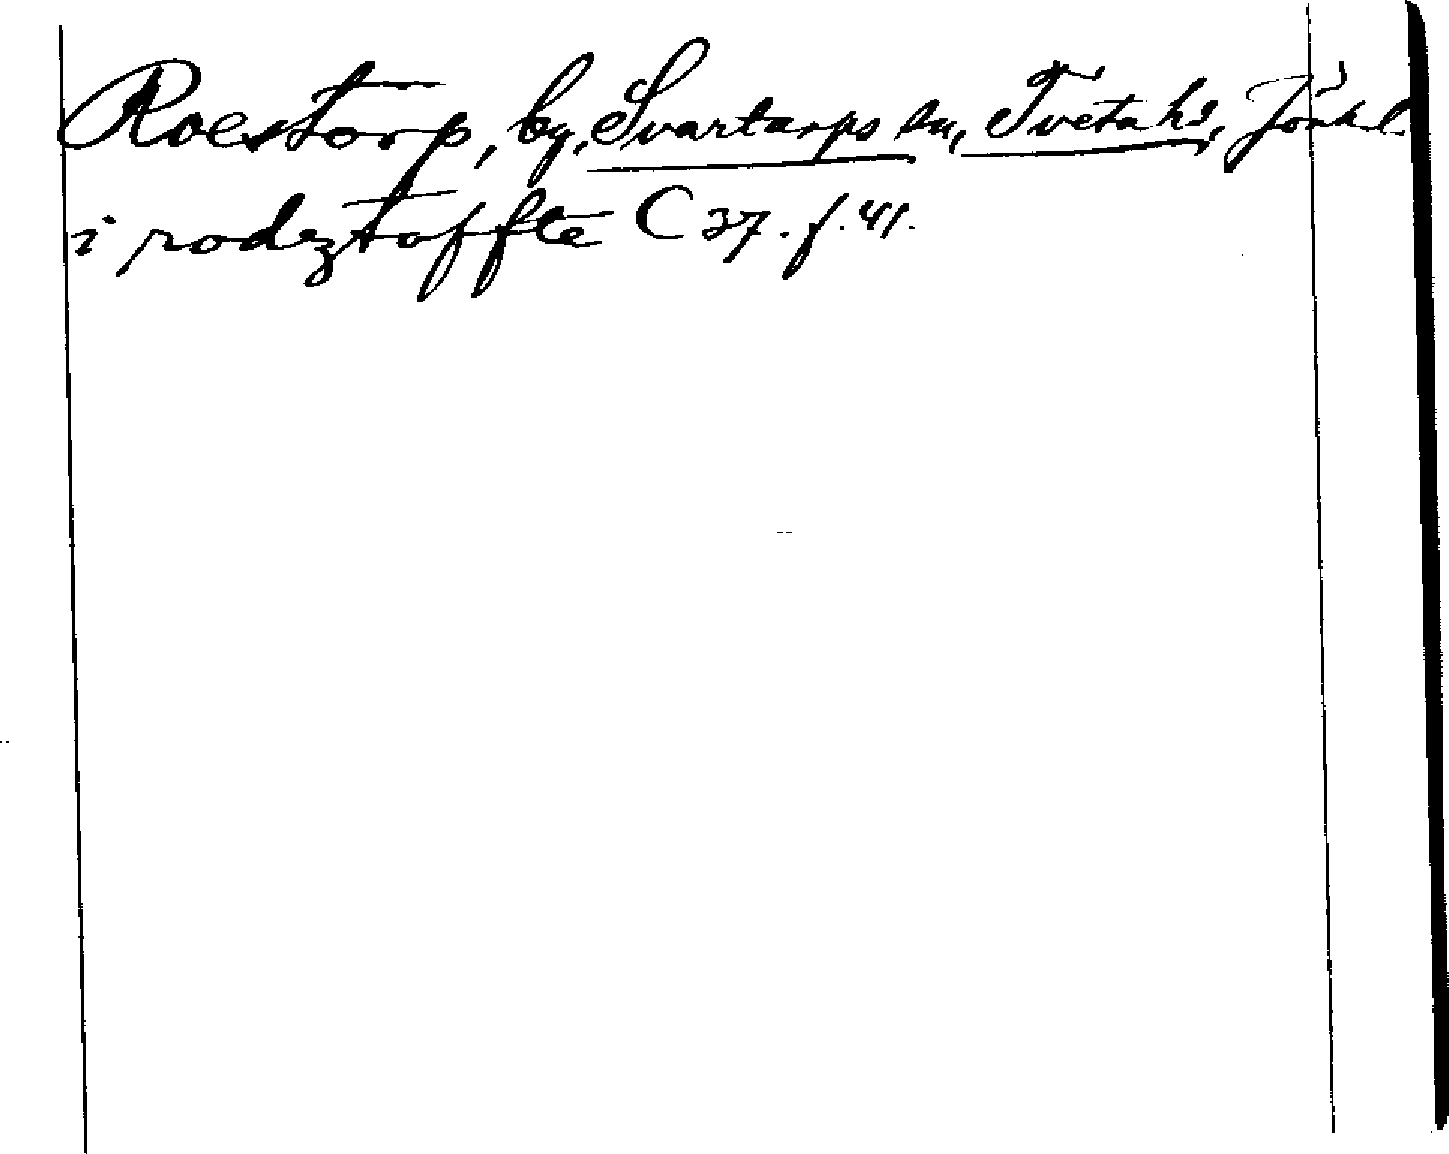 Roestorp, by, Svartarps sn, Tveta hd, Jönk l.
i rodztoffte C 37. f. 41.